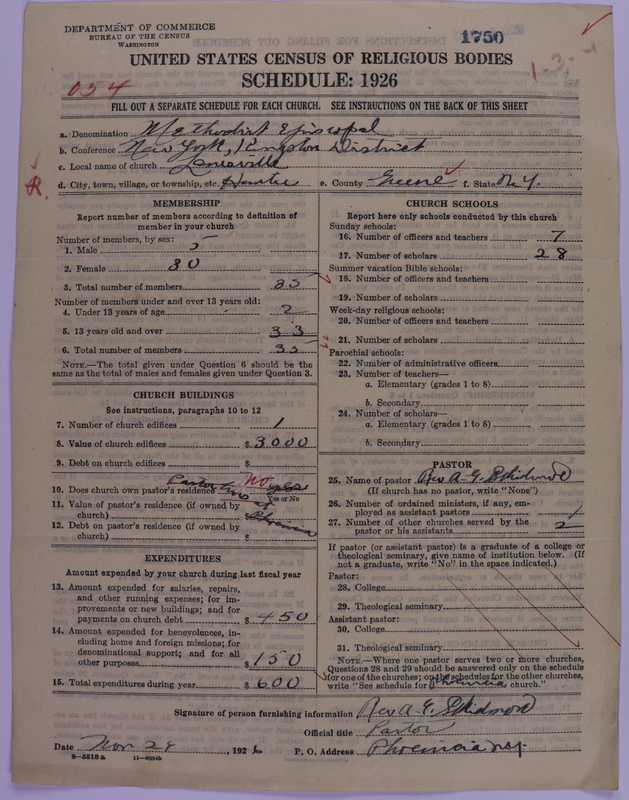 DEPARTMENT OF COMMERCE
BUREAU OF THE CENSUS
WASHINGTON
1750
UNITED STATES CENSUS OF RELIGIOUS BODIES
1-3-4
SCHEDULE: 1926
034
FILL OUT A SEPARATE SCHEDULE FOR EACH CHURCH. SEE INSTRUCTIONS ON THE BACK OF THIS SHEET
a. Denomination Methodist Episcopal
b. Conference New York, Kingston District
c. Local name of church Lanesville
R.
d. City, town, village, or township, etc. Hunter e. County Greene f. State N.Y.
MEMBERSHIP
Report number of members according to definition of
member in your church
Number of members, by sex:
1. Male 5
2. Female 30
3. Total number of members 35
Number of members under and over 13 years old:
4. Under 13 years of age 2
5. 13 years old and over 33
6. Total number of members 35
NOTE.—The total given under Question 6 should be the
same as the total of males and females given under Question 3.
CHURCH BUILDINGS
See instructions, paragraphs 10 to 12
7. Number of church edifices 1
8. Value of church edifices $ 3000
9. Debt on church edifices $
Pastor No yes
10. Does church own pastor's residence
Yes or No
11. Value of pastor's residence (if owned by
church) $ Phoenicia
12. Debt on pastor's residence (if owned by
church) $
EXPENDITURES
Amount expended by your church during last fiscal year
13. Amount expended for salaries, repairs,
and other running expenses; for im-
provements or new buildings; and for
payments on church debt $ 450
14. Amount expended for benevolences, in-
cluding home and foreign missions; for
denominational support; and for all
other purposes $ 150
15. Total expenditures during year $ 600
CHURCH SCHOOLS
Report here only schools conducted by this church
Sunday schools:
16. Number of officers and teachers 7
17. Number of scholars 28
Summer vacation Bible schools:
18. Number of officers and teachers
19. Number of scholars
Week-day religious schools:
20. Number of officers and teachers
21. Number of scholars
Parochial schools:
22. Number of administrative officers
23. Number of teachers—
a. Elementary (grades 1 to 8)
b. Secondary
24. Number of scholars—
a. Elementary (grades 1 to 8)
b. Secondary
PASTOR
25. Name of pastor Rev A G Skidmore
(If church has no pastor, write "None")
26. Number of ordained ministers, if any, em-
ployed as assistant pastors
27. Number of other churches served by the
pastor or his assistants 2
If pastor (or assistant pastor) is a graduate of a college or
theological seminary, give name of institution below. (If
not a graduate, write "No" in the space indicated.)
Pastor:
28. College
29. Theological seminary
Assistant pastor:
30. College
31. Theological seminary
NOTE.—Where one pastor serves two or more churches,
Questions 28 and 29 should be answered only on the schedule
for one of the churches; on the schedules for the other churches,
write "See schedule for Phoenicia church."
Signature of person furnishing information Rev A G Skidmore
Official title Pastor
Date Nov 29, 1926 P. O. Address Phoenicia NY.
8—5518 a